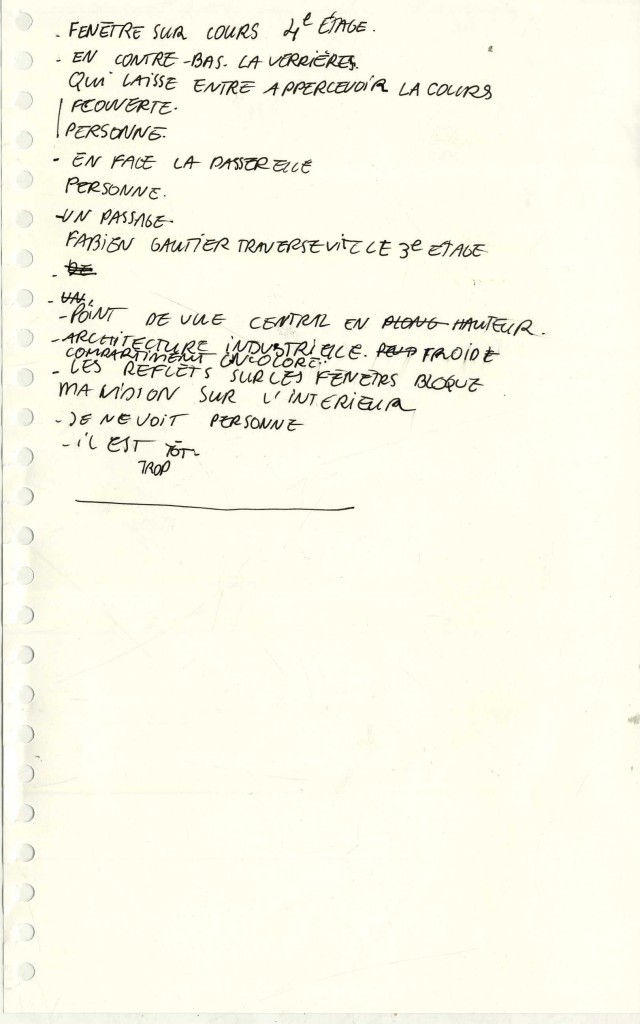 - FENÊTRE SUR COURS 4e ÉTAGE.
- EN CONTRE-BAS. LA VERRIÈRES.
QUI LAISSE ENTRE APPERCEVOIR LA COURS
PERSONNE.
- EN FACE LA PASSERELLE
PERSONNE.
- UN PASSAGE.
FABIEN GAUTIER TRAVERSE VITE LE 3e ETAGE
- DE
- UN.
- POINT DE VUE CENTRAL EN PLONG HAUTEUR.
- ARCHITECTURE INDUSTRIELLE. FROIDE
COMPARTIMENT INCOLORE
- LES REFLETS SUR LES FENÊTRS BLOQUE
MA VISION SUR L'INTERIEUR
- JE NE VOIT PERSONNE
- IL EST TÔT
TROP